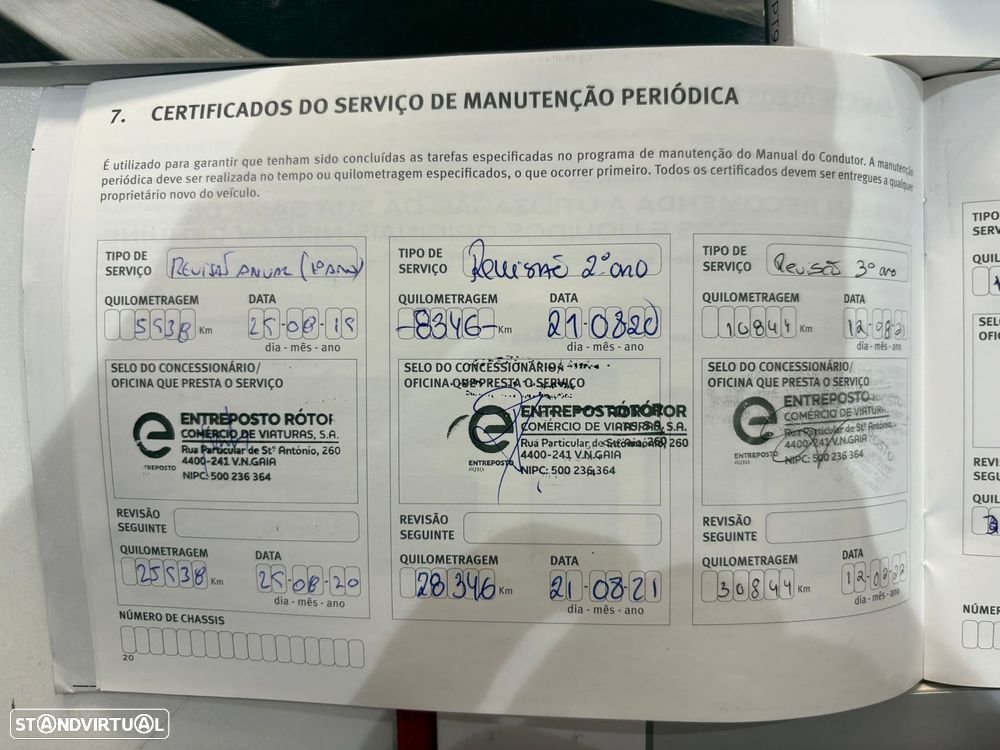 7. CERTIFICADOS DO SERVIÇO DE MANUTENÇÃO PERIÓDICA
É utilizado para garantir que tenham sido concluídas as tarefas especificadas no programa de manutenção do Manual do Condutor. A manutenção
periódica deve ser realizada no tempo ou quilometragem especificados, o que ocorrer primeiro. Todos os certificados devem ser entregues a qualquer
proprietário novo do veículo.
TIPO DE
SERVIÇO
REVISÃO ANUAL (1º ANO)
QUILOMETRAGEM
DATA
5538 Km
25-08-19
dia - mês - ano
SELO DO CONCESSIONÁRIO/
OFICINA QUE PRESTA O SERVIÇO
ENTREPOSTO RÓTOR
COMÉRCIO DE VIATURAS, S.A.
Rua Particular de Stº António, 260
4400-241 V.N.GAIA
NIPC: 500 236 364
REVISÃO
SEGUINTE
QUILOMETRAGEM
DATA
25538 Km
25-08-20
dia - mês - ano
NÚMERO DE CHASSIS
20
TIPO DE
SERVIÇO
Revisão 2º ano
QUILOMETRAGEM
DATA
-8346- Km
21-08-20
dia - mês - ano
SELO DO CONCESSIONÁRIO/
OFICINA QUE PRESTA O SERVIÇO
ENTREPOSTO RÓTOR
COMÉRCIO DE VIATURAS, S.A.
Rua Particular de Stº António, 260
4400-241 V.N.GAIA
NIPC: 500 236 364
ENTREPOSTO
AUTO
REVISÃO
SEGUINTE
QUILOMETRAGEM
DATA
28346 Km
21-08-21
dia - mês - ano
TIPO DE
SERVIÇO
Revisão 3º ano
QUILOMETRAGEM
DATA
10844 Km
12-08-21
dia - mês - ano
SELO DO CONCESSIONÁRIO/
OFICINA QUE PRESTA O SERVIÇO
ENTREPOSTO
COMÉRCIO DE VIATUR
Rua Particular de Stº António,
4400-241 V.N.GAIA
NIPC: 500 236 364
ENTREPOSTO
AUTO
REVISÃO
SEGUINTE
QUILOMETRAGEM
DATA
30844 Km
12-08-22
dia - mês - ano
TIPO
SERV
QUIL
SELO
OFI
REVI
SEGU
QUIL
NÚMER
STANDVIRTUAL